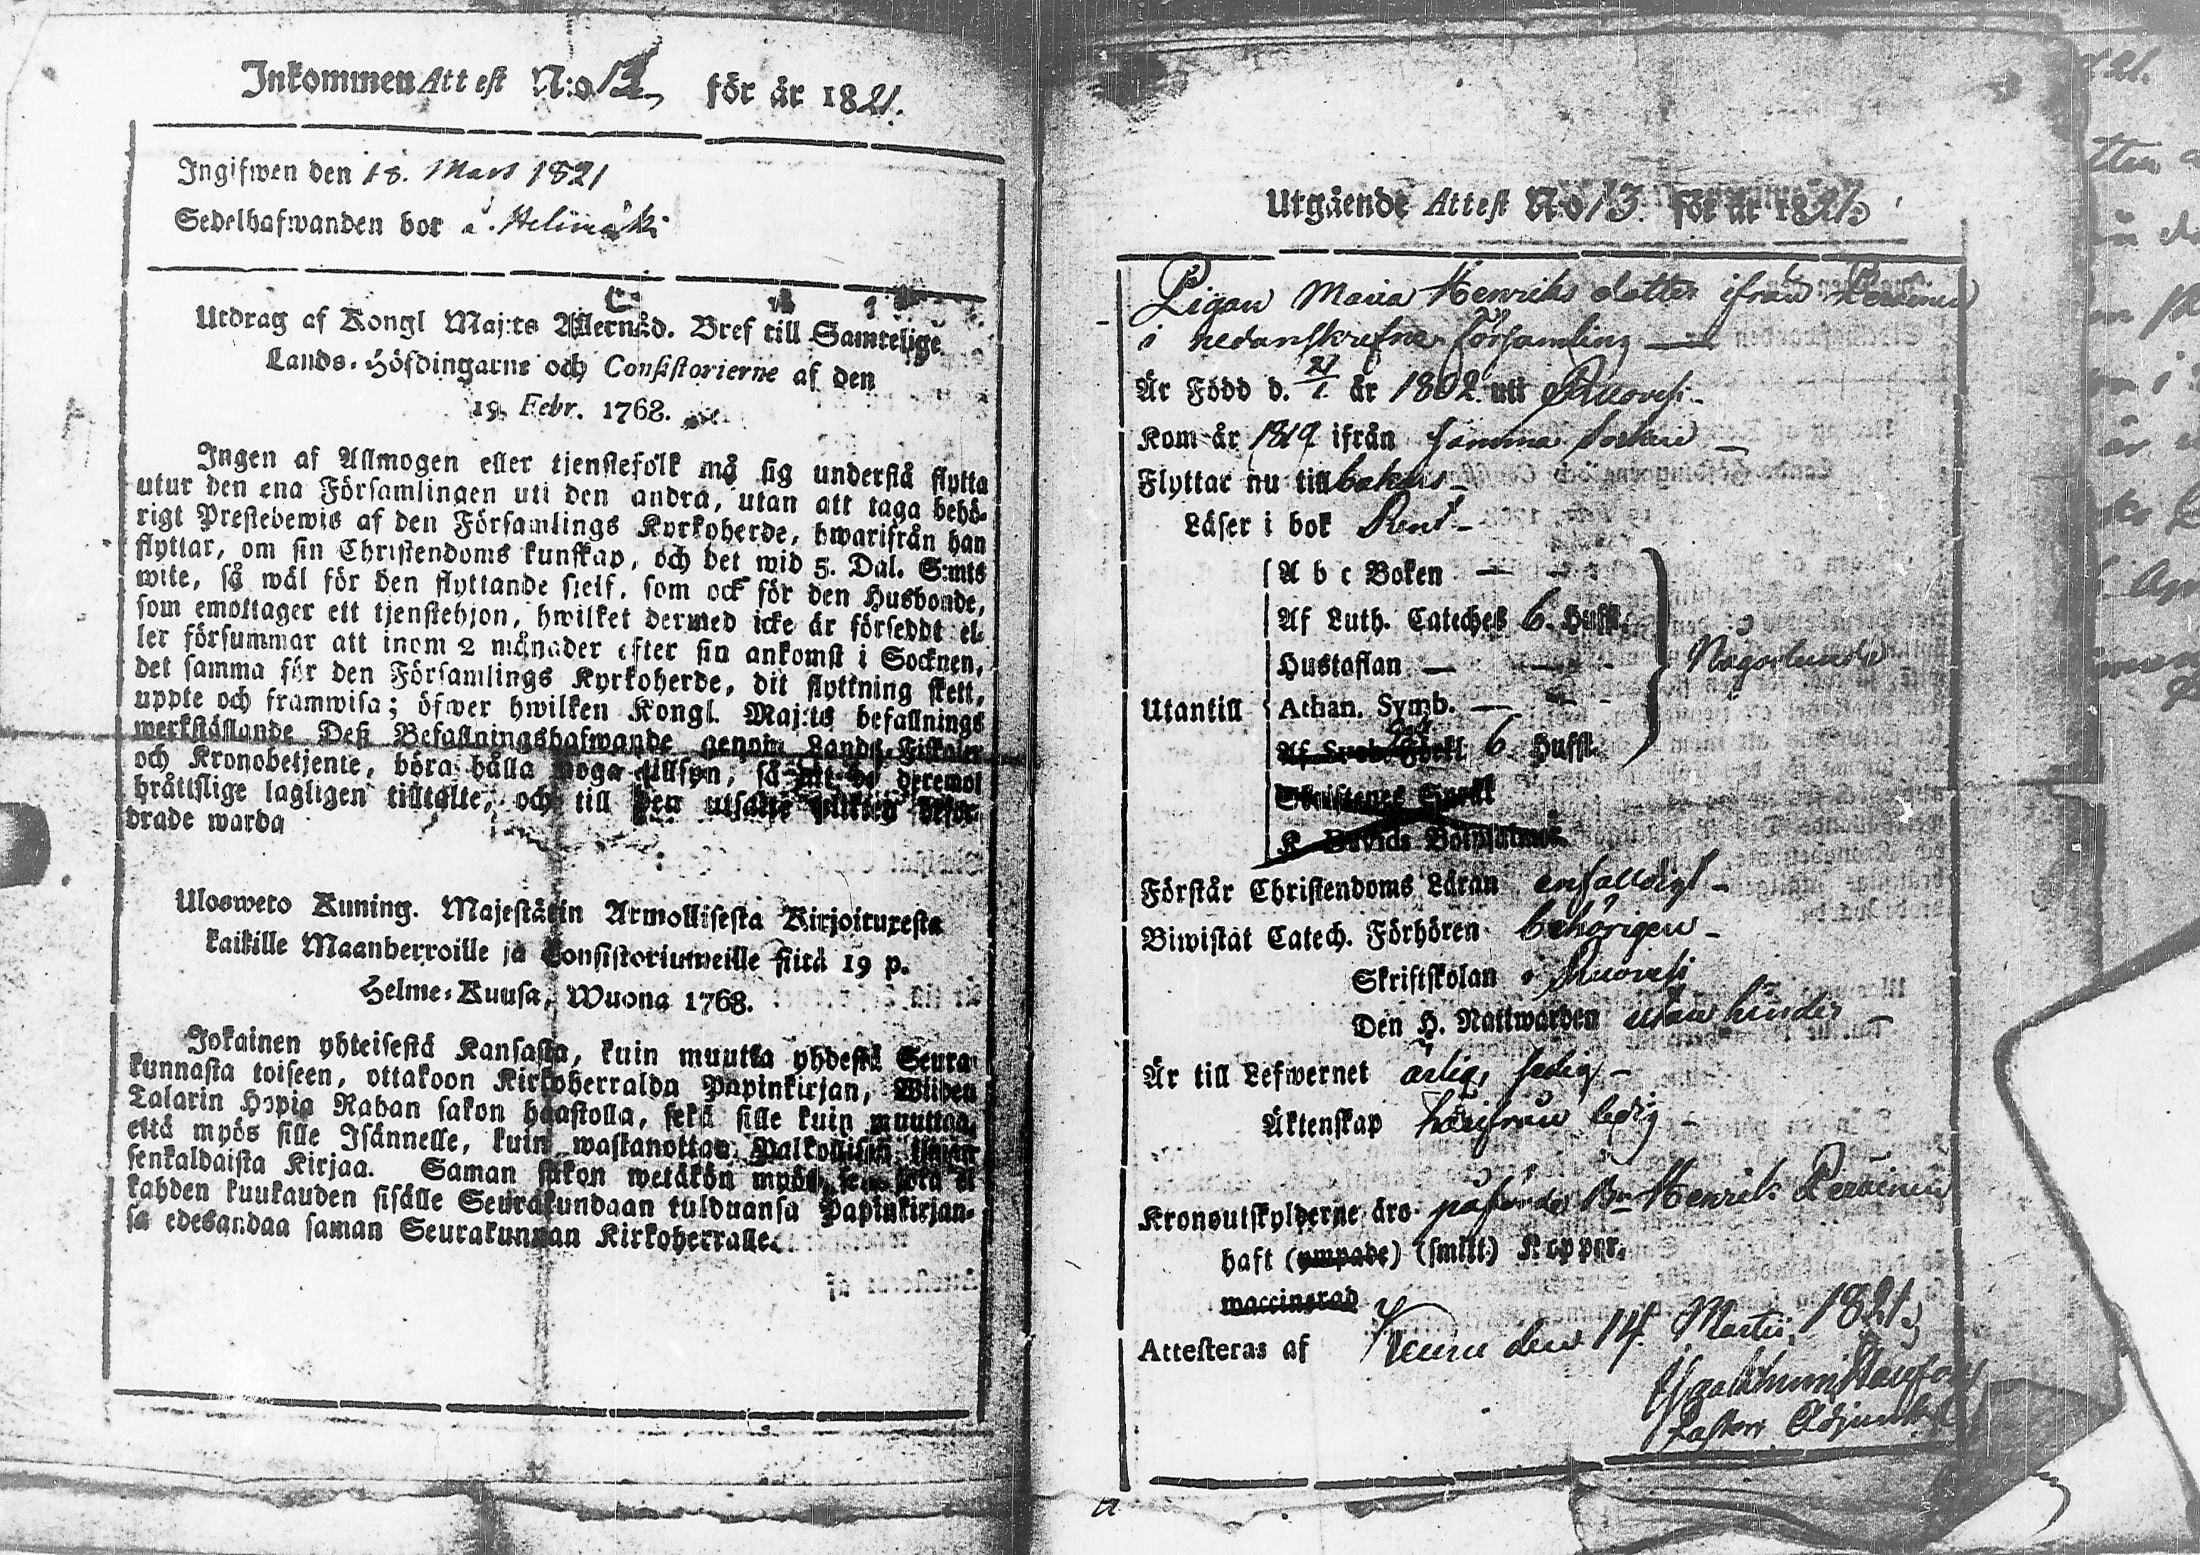 Inkommen Attest N:o 12 för år 1821.
Ingifwen den 18. Mars 1821
Sedelhafwanden bor å Helimäki
Utdrag af Kongl Maj:ts Allernåd. Bref till Samtelige
Lands-Höfdingarne och Consistorierne af den
19 Febr. 1768.
Ingen af Allmogen eller tjenstefolk må sig understå flytta
utur den ena Församlingen uti den andra, utan att taga behö-
rigt Prestebewis af den Församlings Kyrkoherde, hwarifrån han
flyttar, om sin Christendoms kunskap, och det wid 5. Dal. S:mts
wite, så wäl för den flyttande sielf, som ock för den Husbonde,
som emottager ett tjenstehjon, hwilket dermed icke är försedt el-
ler försummar att inom 2 månader efter sin ankomst i Socknen,
det samma för den Församlings Kyrkoherde, dit flyttning skett,
uppte och framwisa; öfwer hwilken Kongl. Maj:ts befallnings
werkställande Deß Befallningshafwande genom Lands-Fiskaler
och Kronobetjente, böra hålla noga tillsyn, så att de deremot
bråttslige lagligen tilltalte, och till den utsatte plikten befor-
drade warda
Ulosweto Kuning. Majestätin Armollisesta Kirjoituxesta
kaikille Maanherroille ja Consistoriumeille siitä 19 p.
Helme-Kuusa, Wuona 1768.
Jokainen yhteisestä Kansasta, kuin muutta yhdestä Seura-
kunnasta toiseen, ottakoon Kirkoherralda Papinkirjan, Wiiden
Talarin Hopia Rahan sakon haastolla, sekä sille kuin muuttaa,
että myös sille Isännelle, kuin wastanottaa Palkollisen ilman
senkaldaista Kirjaa. Saman sakon wetäkön myös se joka ei
kahden kuukauden sisälle Seurakundaan tulduansa Papinkirjan-
sa edesandaa saman Seurakunnan Kirkoherralle.
Utgående Attest No 13. för år 1821.
Pigan Maria Henriks dotter ifrån
i nedanskrefne församling
Är Född d. 21/1. år 1802 uti Ruovesi
Kom år 1819 ifrån samma
Flyttar nu till bakars
Läser i bok Rent
A b c Boken
Af Luth. Cateches 6. Huffst.
Hustaflan
Utantill Athan. Symb. Någorlunda
Af Förkl 6 Huffst.
K Davids Botpsalmer
Förstår Christendoms Läran enfalldigt
Biwistat Catech. Förhören behörigen
Skriftskolan i Ruovesi
Den H. Nattwarden utan hinder
Är till Lefwernet ärlig, sedig
Äktenskap härifrån ledig
Kronoutskylderne äro påförde Bn Henrik
haft (ympade) (smitt.) Koppor.
waccinerad
Attesteras af Keuru den 14. Martii 1821.
Pastors Adjunkt